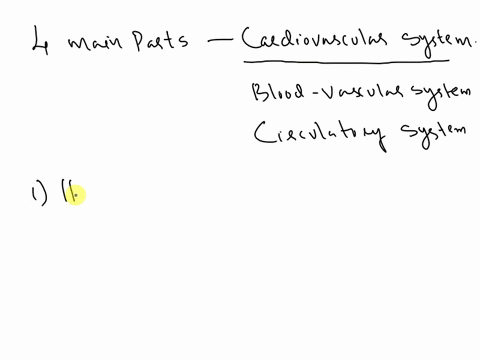 4 main Parts — Cardiovascular system.
Blood-Vascular system
Circulatory system
1) H